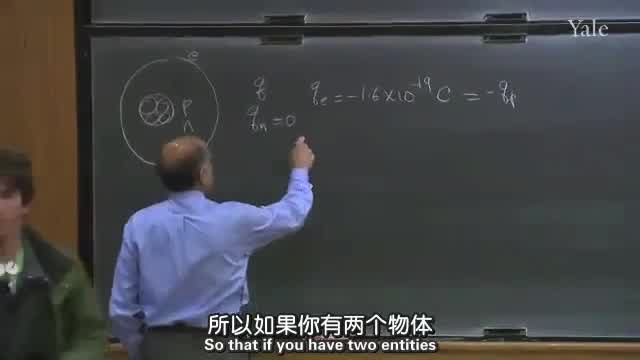 Yale
e
P
n
q
qₑ = -1.6×10⁻¹⁹ C = -qₚ
qₙ = 0
所以如果你有两个物体
So that if you have two entities